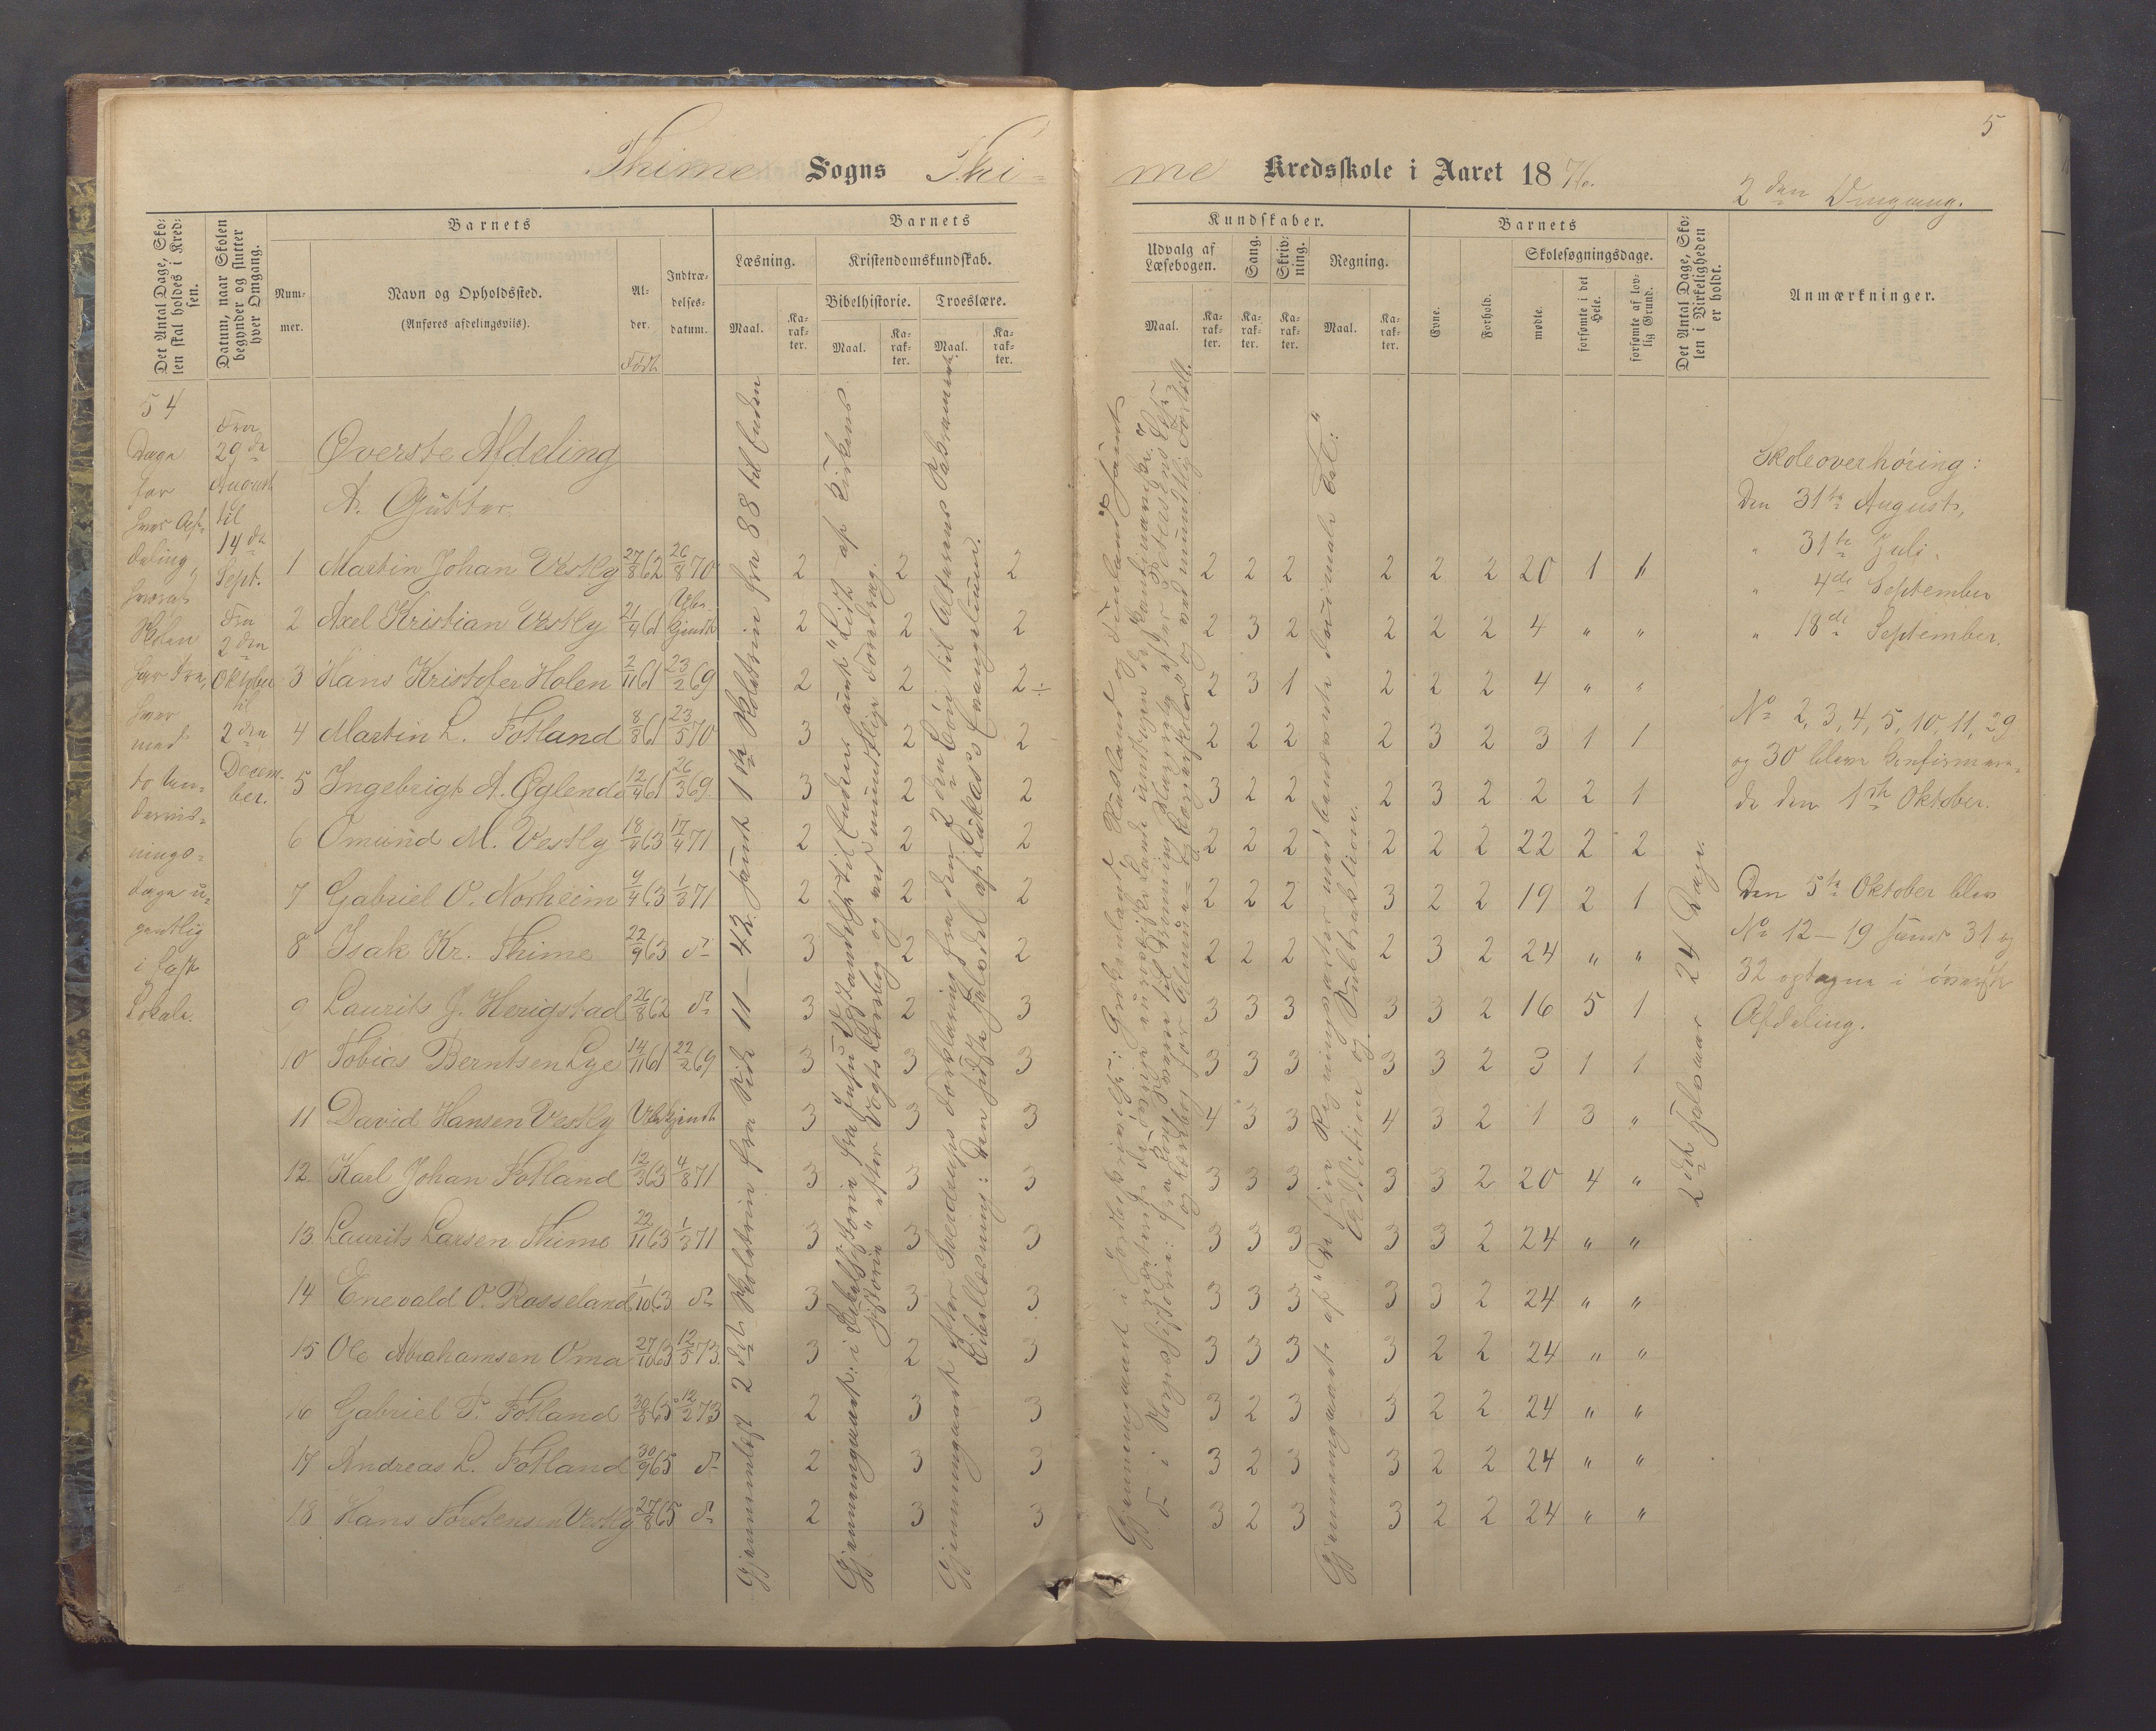 5
Thime Sogns Thi-
me Kredsskole i Aaret 1876.
2den Omgang.
Det Antal Dage, Sko-
len skal holdes i Kred-
sen.
Datum, naar Skolen
begynder og slutter
hver Omgang.
Barnets
Num-
mer.
Navn og Opholdssted.
(Anføres afdelingsviis).
Al-
der.
Født
Indtræ-
delses-
datum.
Barnets
Læsning.
Maal.
Ka-
rak-
ter.
Kristendomskundskab.
Bibelhistorie.
Maal.
Ka-
rak-
ter.
Troeslære.
Maal.
Ka-
rak-
ter.
Kundskaber.
Udvalg af
Læsebogen.
Maal.
Ka-
rak-
ter.
Sang.
Ka-
rak-
ter.
Skriv-
ning.
Ka-
rak-
ter.
Regning.
Maal.
Ka-
rak-
ter.
Barnets
Evne.
Forhold.
Skolesøgningsdage.
mødte.
forsømte i det
Hele.
forsømte af lov-
lig Grund.
Det Antal Dage, Sko-
len i Virkeligheden
er holdt.
Anmærkninger.
54
Dage
for
hver Af-
deling,
hvoraf
Skolen
har fra,
hver
med
to Un-
dervis-
nings-
dage u-
gentlig
i fast
Lokale.
Fra
29de
August
til
14de
Sept.
Fra
2den
Oktober
til
2den
Decem-
ber.
Øverste Afdeling
A. Gutter.
1 Martin Johan Vestly 27/8 62 26/8 70 2 2 2 2 2 2 2 2 2 20 1 1
2 Axel Kristian Vestly 21/4 61 Ube-kjendt 2 2 2 2 3 2 2 2 2 4 " "
3 Hans Kristofer Holen 2/11 61 23/2 69 2 2 2÷ 2 3 1 2 2 2 4 " "
4 Martin L. Fotland 8/8 61 23/5 70 3 2 2 2 2 2 2 3 2 3 1 1
5 Ingebrigt A. Øglend 12/4 61 26/3 69 3 2 2 3 2 2 2 3 2 2 2 1
6 Omund M. Vestly 18/4 63 17/4 71 2 2 2 2 2 2 2 2 2 22 2 2
7 Gabriel O. Norheim 9/4 63 1/3 71 2 2 2 2 2 2 3 2 2 19 2 1
8 Isak Kr. Thime 22/9 63 do 3 2 2 2 2 2 2 3 2 24 " "
9 Laurits J. Herigstad 26/8 62 do 3 2 3 3 3 3 3 3 2 16 5 1
10 Tobias Berntsen Lye 14/11 61 22/2 69 3 3 3 3 3 3 3 3 2 3 1 1
11 David Hansen Vestly Ubekjendt 3 3 3 4 3 3 4 3 2 1 3 "
12. Karl Johan Fotland 12/3 63 4/8 71 3 3 3 3 3 3 3 3 2 20 4 "
13. Laurits Larsen Thime 22/11 63 1/3 71 3 3 3 3 3 3 3 3 2 24 " "
14 Enevald O. Rosseland 1/10 63 do 3 3 3 3 3 3 3 3 2 24 " "
15 Ole Abrahamsen Oma 27/10 63 12/5 73. 3 2 3 3 3 3 3 2 2 24 " "
16 Gabriel T. Fotland 30/8 65 12/2 73 2 3 3 3 2 3 3 2 2 24 " "
17 Andreas L. Fotland 30/9 65 do 2 3 3 3 2 3 3 2 2 24 " "
18 Hans Torstensen Vestly 27/8 65 do 2 3 3 3 2 3 3 2 2 24 " "
Gjennemlæst 2det Skoletrin fra Side 11–42, samt 1ste Skoletrin fra 88 til Enden
Gjennemgaaet: i Bibelhistorie fra Jesu Opstandelse til Enden samt "Lidt af Kirkens
Historie" efter Vogts Lærebog og ved mundtlige Foredrag.
Gjennemgaaet efter Sverdrups Forklaring fra den 2den Bøn til Alterens Sakrament.
Bibellæsning: Den sidste Halvdel af Lukas's Evangelium.
Gjennemgaaet i Jordbeskrivelse: Grækenland, Rusland og Finland samt
Gjennemgaaet af "De fire Regningsarter med benævnte Decimale Tal"
Addition og Subtraktion.
2det Halvaar 24 Dage.
Skoleoverhøring:
Den 31te August,
" 31te Juli.
" 4de September
" 18de September.
No 2, 3, 4, 5, 10, 11, 29
og 30 bleve konfirmere-
de den 1ste Oktober.
Den 5te Oktober blev
No 12–19 samt 31 og
32 optagne i øverste
Afdeling.